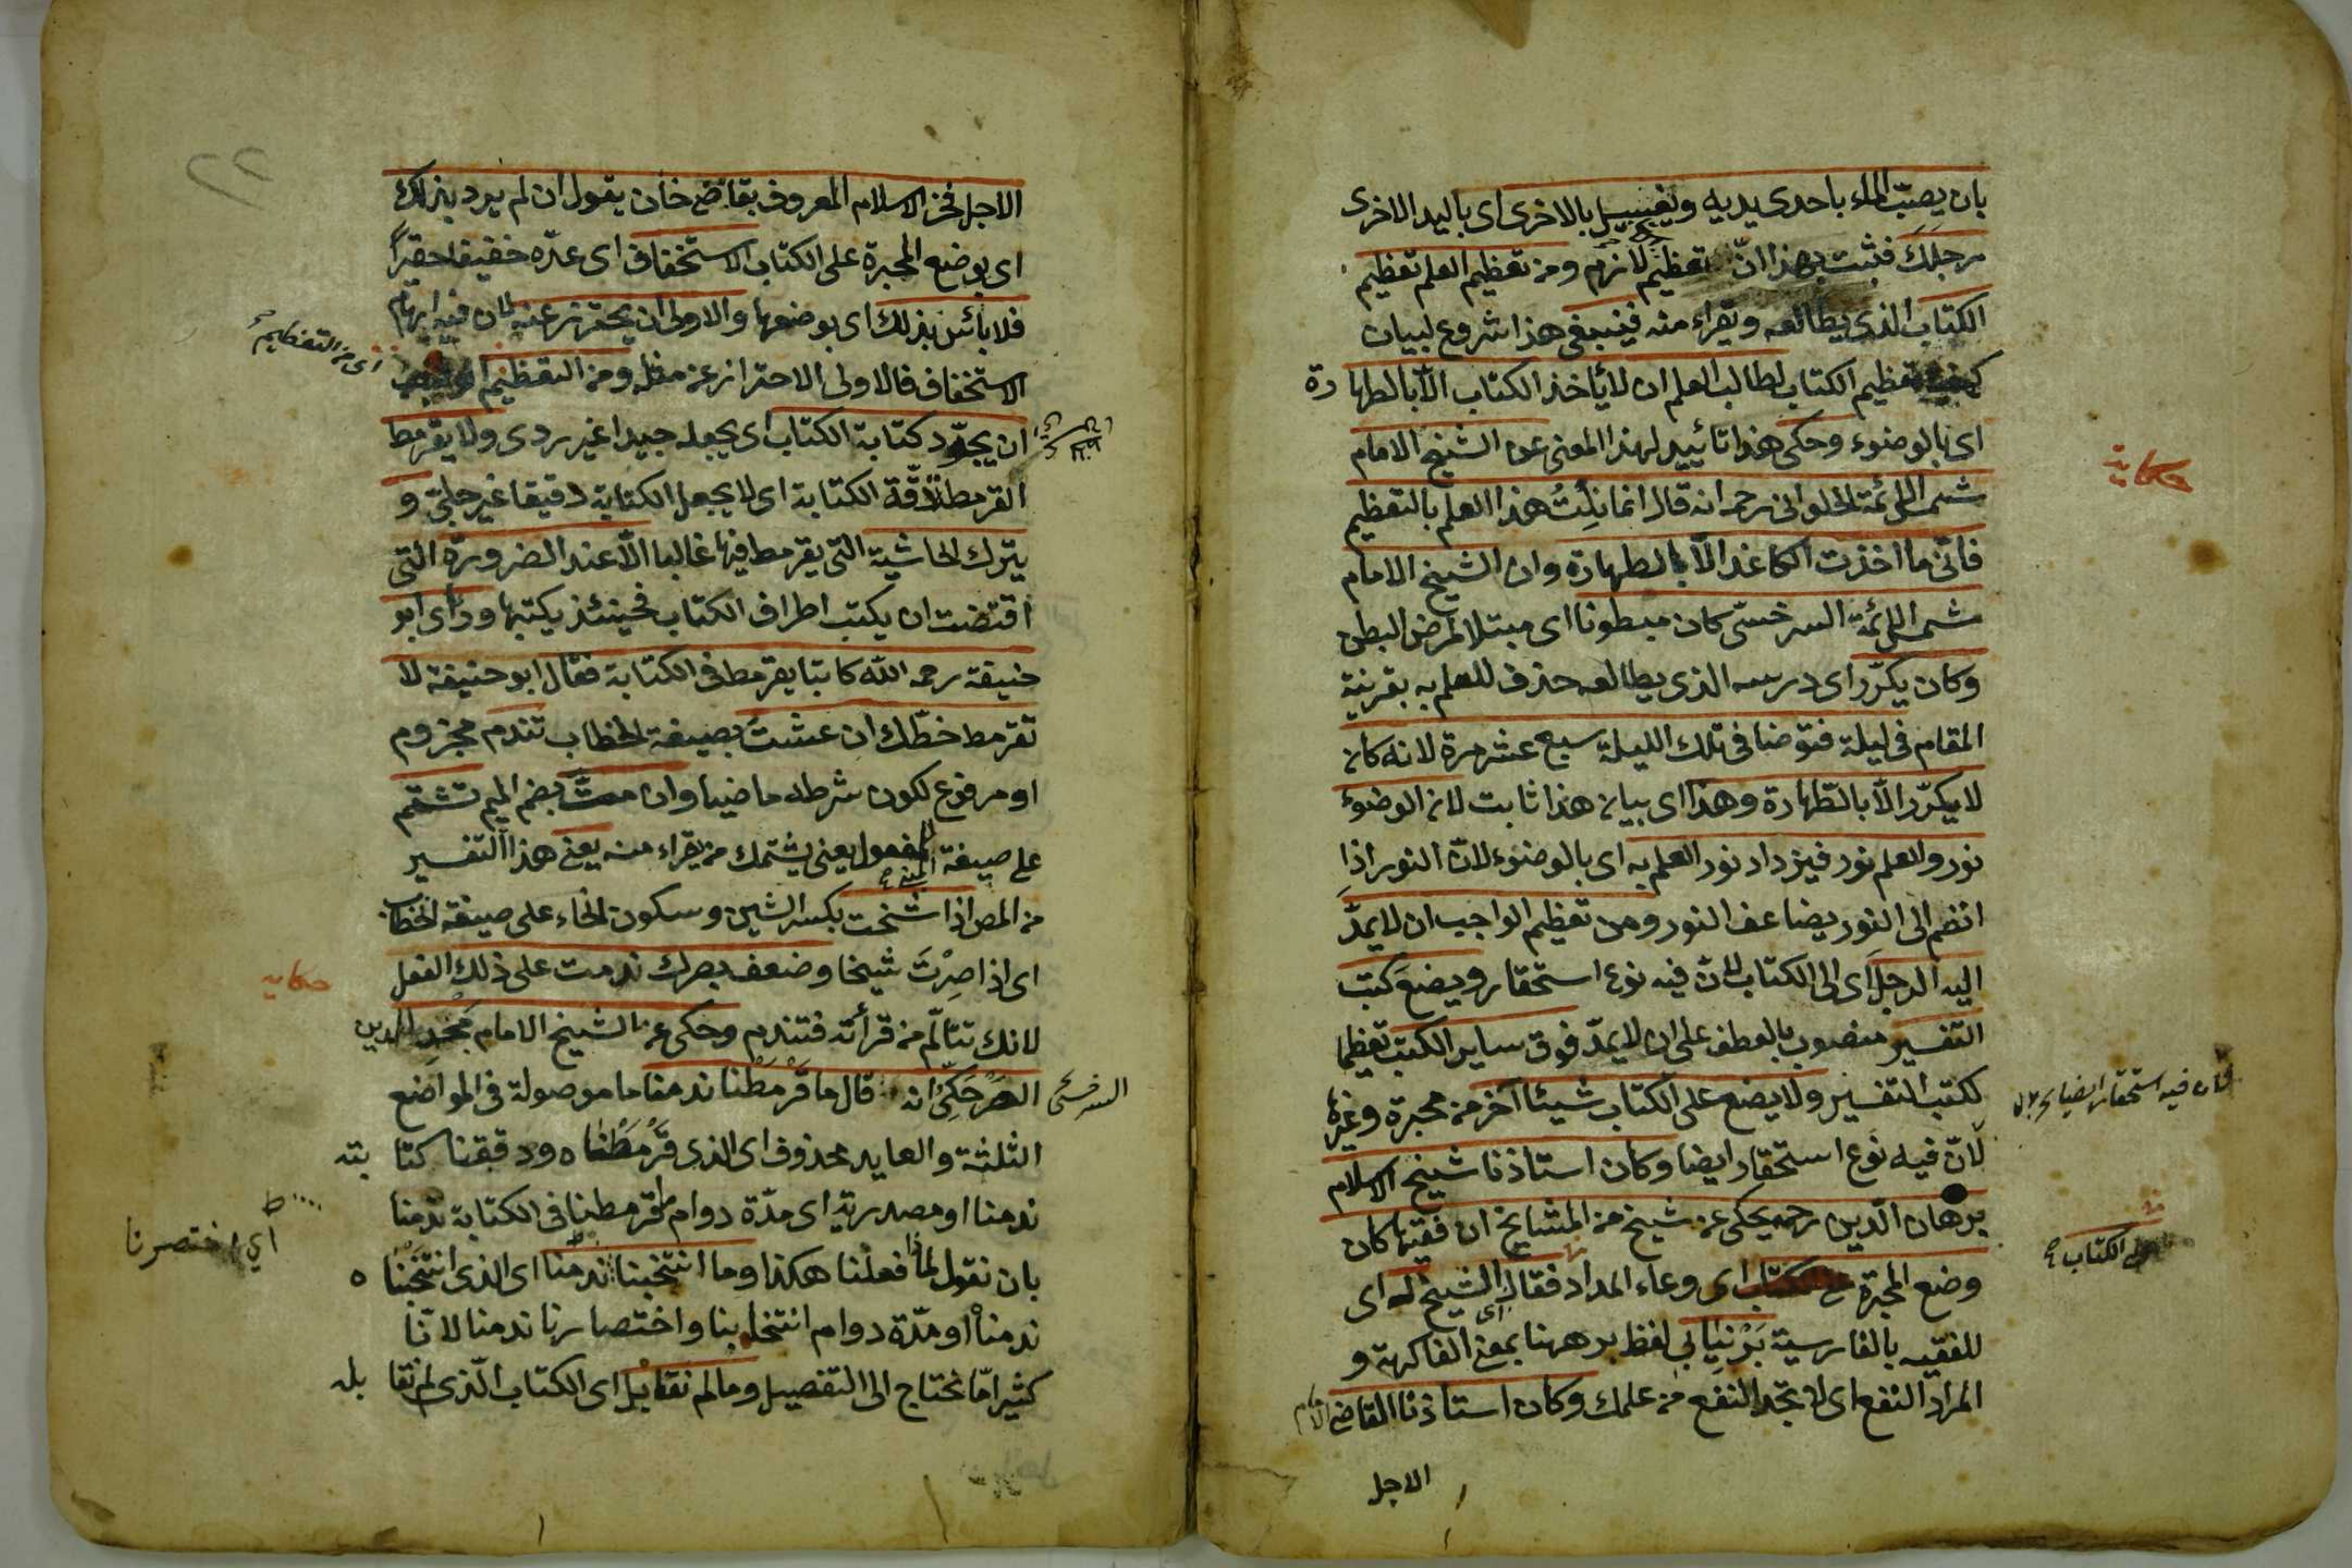 بان يصبّ الماء باحدى يديه ويغسل بالاخرى اى باليد الاخرى
رجلك فثبت بهذا انّ تعظيم لازم ومن تعظيم العلم تعظيم
الكتاب الذى يطالعه ويقراء منه فينبغى هذا شروع لبيان
تعظيم الكتاب لطالب العلم ان لا يأخذ الكتاب الّا بالطهارة
اى بالوضوء وحكى هذا تأييد لهذا المعنى عن الشيخ الامام
حكاية
شمس الائمة الحلوانى رحمه انه قال انما نِلتُ هذا العلم بالتعظيم
فانّى ما اخذت الكاغد الّا بالطهارة وان الشيخ الامام
شمس الائمة السرخسىّ كان مبطونا اى مبتلا لمرض البطن
وكان يكرّر اى درسه الذى يطالعه حذف للعلم به بقرينة
المقام فى ليلة فتوضا فى تلك الليلة سبع عشر مرة لانه كان
لا يكرّر الّا بالطهارة وهذا اى بيان هذا ثابت لان الوضوء
نور والعلم نور فيزداد نور العلم به اى بالوضوء لانّ النور اذا
انضم الى النور يضاعف النور ومن تعظيم الواجب ان لا يمدّ
اليه الرجل اى الى الكتاب لانّ فيه نوع استحقار ويضع كتب
التفسير منصوب بالعطف على ان لا يمدّ فوق ساير الكتب تعظيما
لكتب التفسير ولا يضع على الكتاب شيئا آخر من محبرة وغيرها
فان فيه استحقار ايضا
لانّ فيه نوع استحقار ايضا وكان استاذنا شيخ الاسلام
برهان الدّين رحمه يحكى عن شيخ من المشايخ ان فقيها كان
وضع المحبرة على الكتاب اى وعاء المداد فقال الشيخ له اى
على الكتاب
للفقيه بالفارسية بَرْنيابى لفظ بر ههنا بمعنى الفاكهة و
المراد النفع اى لا تجد النفع من علمك وكان استاذنا القاضى الامام
الاجل
الاجل فخر الاسلام المعروف بقاضى خان يقول ان لم يرد بذلك
اى بوضع المحبرة على الكتاب الاستخفاف اى عدّه خفيفا حقيرًا
فلا بأس بذلك اى بوضعها والاولى ان يحترز عنه لان فيه ايهام
اى من التعظيم
الاستخفاف فالاولى الاحتراز عن مثله ومن التعظيم
ان يجوّد كتابة الكتاب اى يجعله جيدا غير ردى ولا يقرمط
القرمطة دقّة الكتابة اى لا يجعل الكتابة دقيقا غير جلىّ و
يترك الحاشية التى يقرمط فيها غالبا الّا عند الضرورة التى
اقتضت ان يكتب اطراف الكتاب فحينئذ يكتبها ورأى ابو
حنيفة رحمه الله كاتبا يقرمط فى الكتابة فقال ابو حنيفة لا
تقرمط خطّك ان عشتَ بصيغة الخطاب تندم مجزوم
او مرفوع لكون شرطه ماضيا وان متّ بضم الميم تشتم
على صيغة المفعول يعنى يشتمك من يقراء منه يعنى هذا التفسير
من المص اذا شخت بكسر الشين وسكون الخاء على صيغة الخطاب
اى اذا صِرْتَ شيخا وضعف بصرك ندمت على ذلك الفعل
حكاية
لانك تتألّم من قرأته فتندم وحكى عن الشيخ الامام مجد الدين
السرخسى
الصَرْحَكىّ انه قال ما قَرْمَطْنا ندمنا ما موصولة فى المواضع
الثلثة والعايد محذوف اى الذى قَرْمَطْناه ودققنا كتابته
ندمنا او مصدرية اى مدّة دوام قرمطنا فى الكتابة ندمنا
اى اختصرنا
بان نقول لماذا فعلنا هكذا وما انتخبنا ندمنا اى الذى انتخبناه
ندمنا او مدّة دوام انتخابنا واختصارنا ندمنا لانّا
كثيرا مّا نحتاج الى التفصيل وما لم نقابل اى الكتاب الّذى لم نقابله